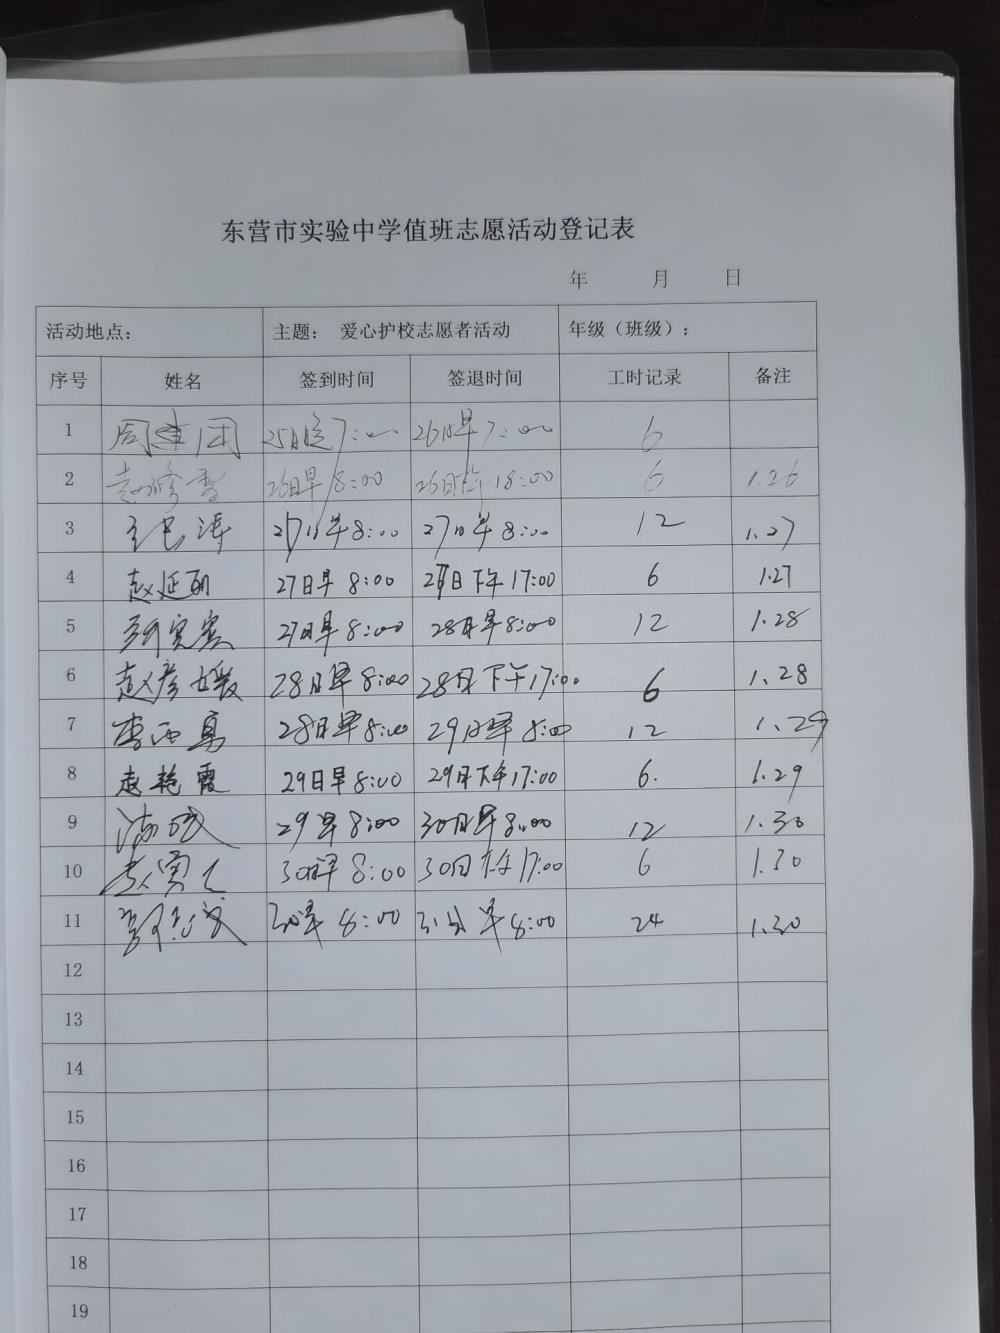 东营市实验中学值班志愿活动登记表
年 月 日
活动地点： 主题： 爱心护校志愿者活动 年级（班级）：
序号 姓名 签到时间 签退时间 工时记录 备注
1 周建国 25日 7:00 26日早7:00 6
2 赵修雪 26日早8:00 26日 18:00 6 1.26
3 27日早8:00 27日早8:00 12 1.27
4 赵延丽 27日早8:00 27日下午17:00 6 1.27
5 27日早8:00 28日早8:00 12 1.28
6 赵彦媛 28日早8:00 28日下午17:00 6 1.28
7 李西勇 28日早8:00 29日早8:00 12 1.29
8 赵艳霞 29日早8:00 29日下午17:00 6. 1.29
9 29早8:00 30日早8:00 12 1.30
10 30日早8:00 30日下午17:00 6 1.30
11 30早8:00 31日早8:00 24 1.30
12
13
14
15
16
17
18
19